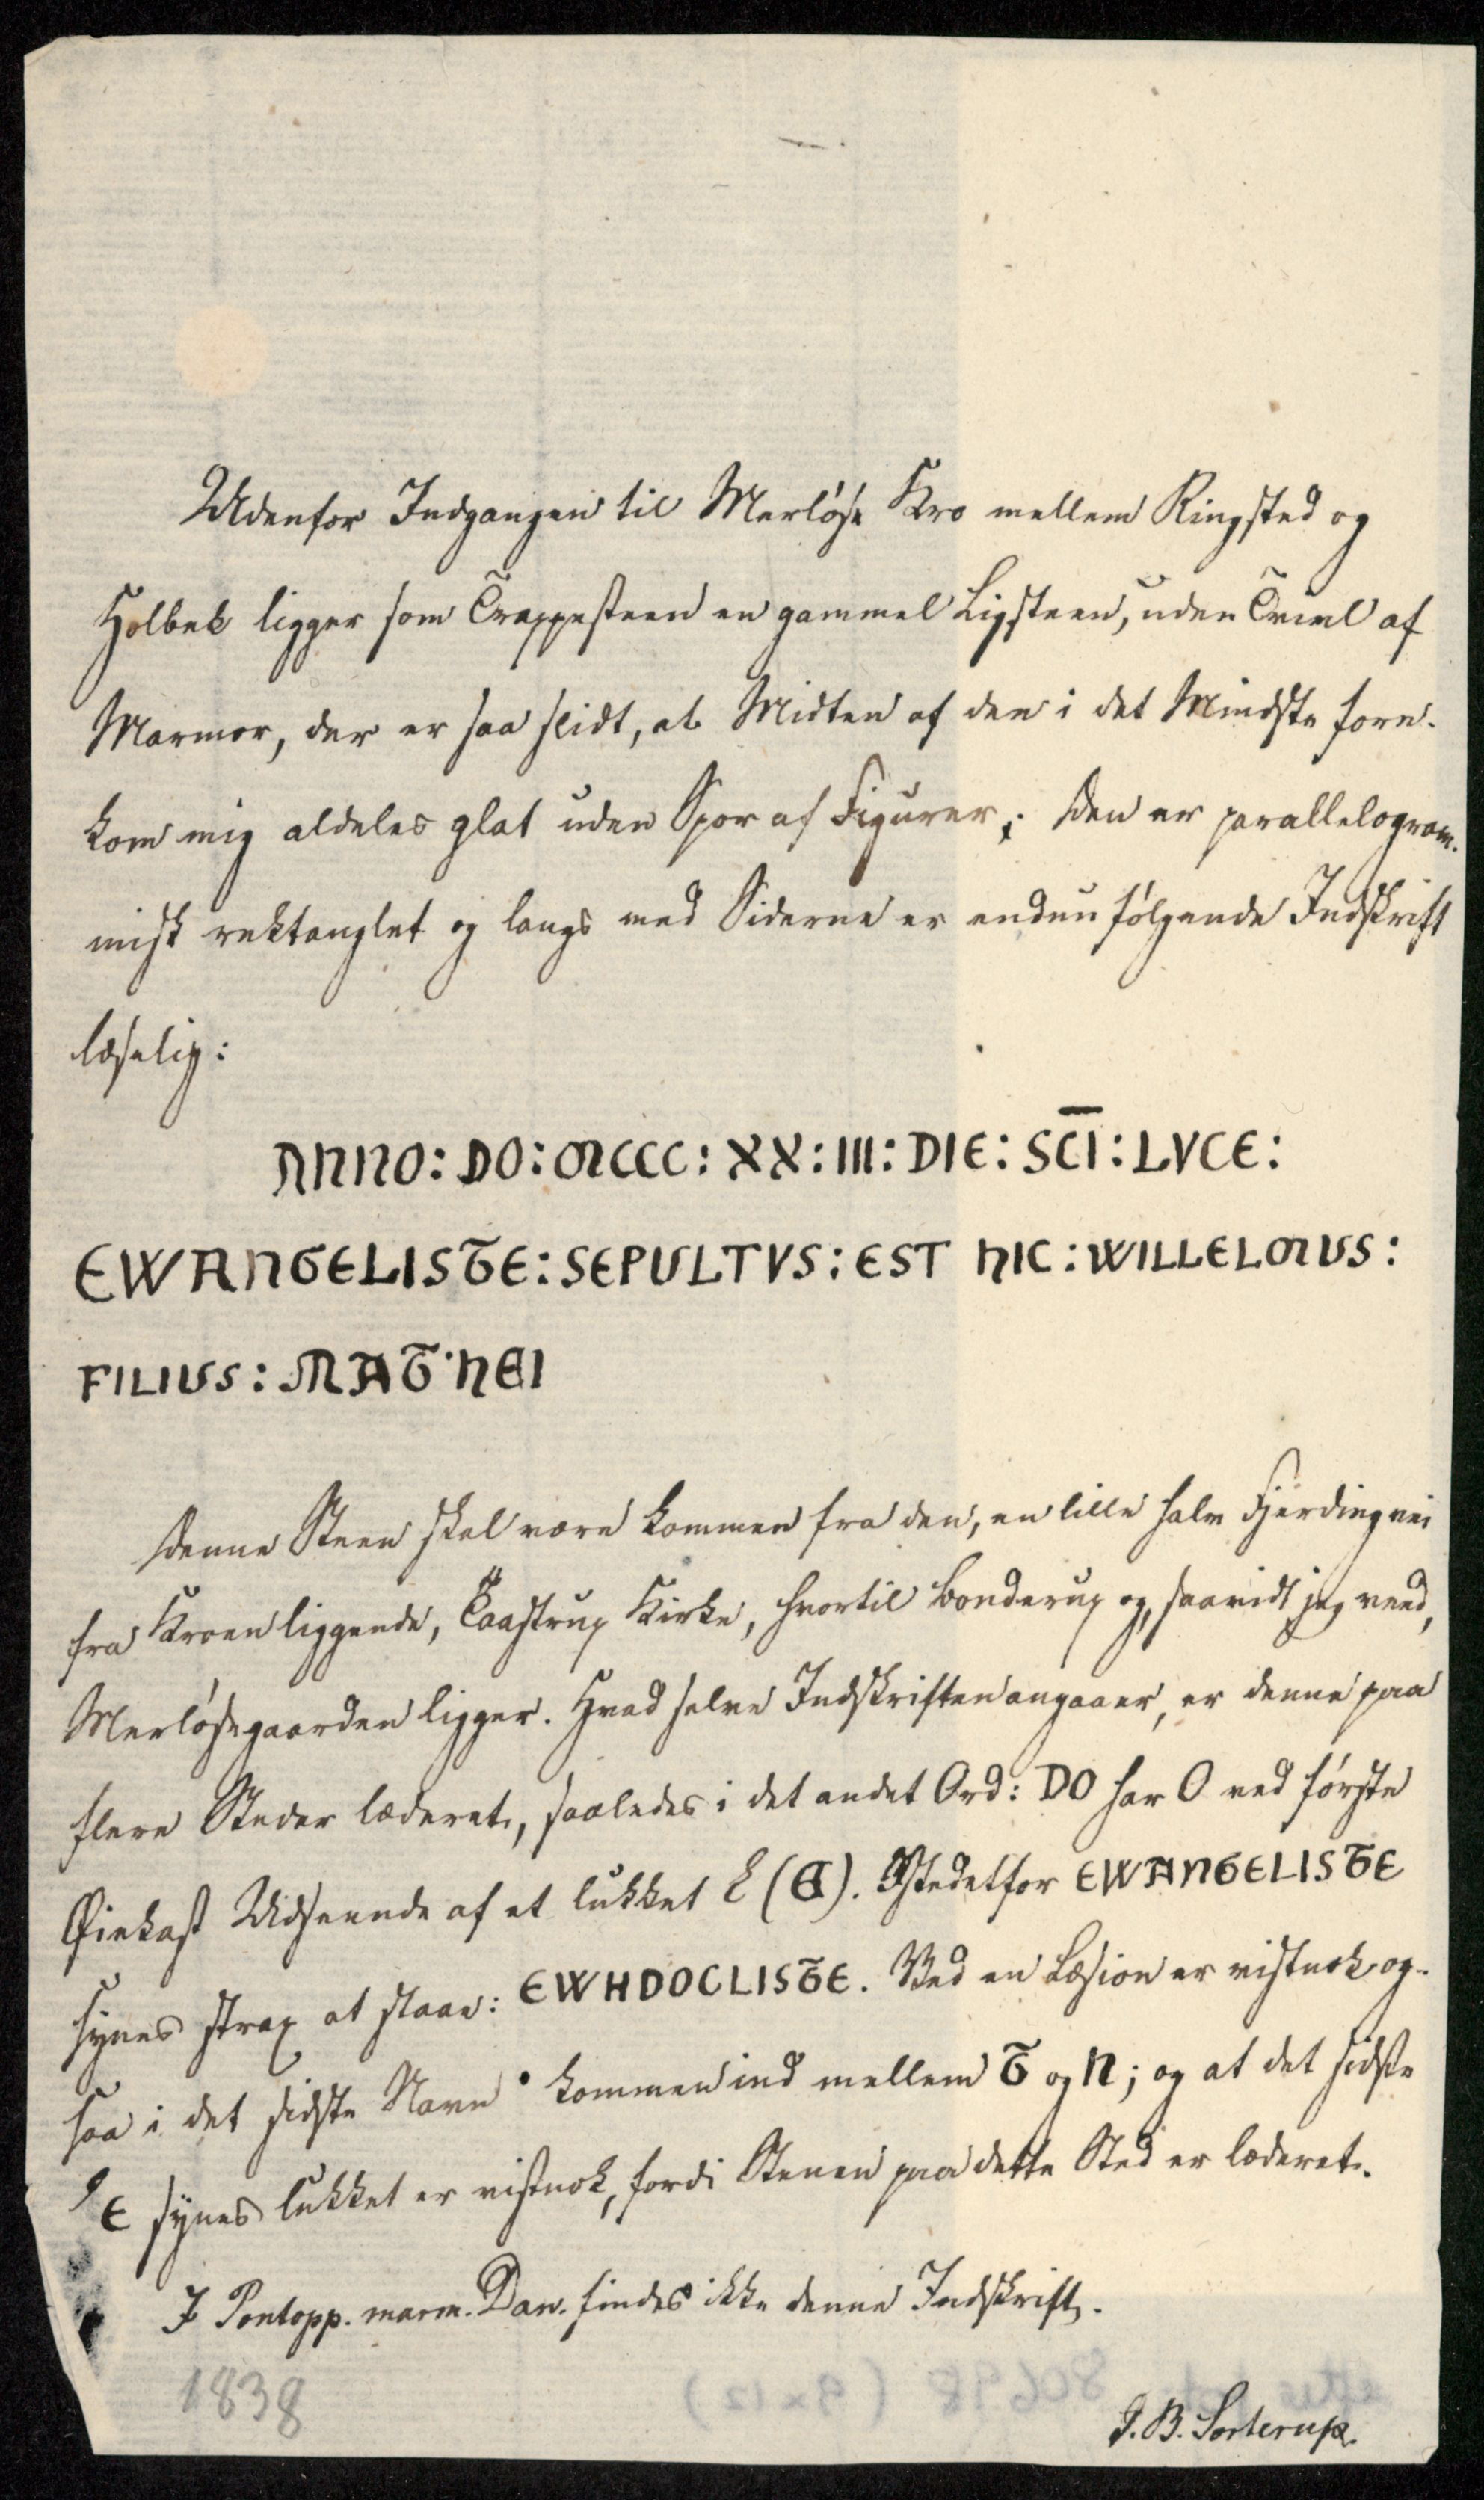 Udenfor Indgangen til Merløse Kro mellem Ringsted og
Holbek ligger som Trappesteen en gammel Ligsteen, uden Tvivl af
Marmor, der er saa slidt, at Midten af den i det Mindste fore-
kom mig aldeles glat uden Spor af Figurer; den er parallelogram-
misk rektanglet og langs med Siderne er endnu følgende Indskrift
læselig:
ANNO: DO: MCCC: XX: III: DIE: SC̅I: LVCE:
EWANGELISTE: SEPULTVS: EST HIC: WILLELMUS:
FILIUS: MAG·NEI
Denne Steen skal være kommen fra den, en lille halv Fjerdingvei
fra Kroen liggende, Taastrup Kirke, hvortil Bonderup og, saavidt jeg veed,
Merløsegaarden ligger. Hvad selve Indskriften angaaer, er denne paa
flere Steder læderet, saaledes i det andet Ord: DO har O ved første
Øiekast Udseende af et lukket E (E). Istedetfor EWANGELISTE
synes strax at staae: EWHDOCLISTE. Ved en Læsion er vistnok og-
saa i det sidste Navn · kommen ind mellem G og N; og at det sidste
E synes lukket er vistnok, fordi Stenen paa dette Sted er læderet.
I Pontopp. marm. Dan. findes ikke denne Indskrift.
1838
J. B. Sorterup.